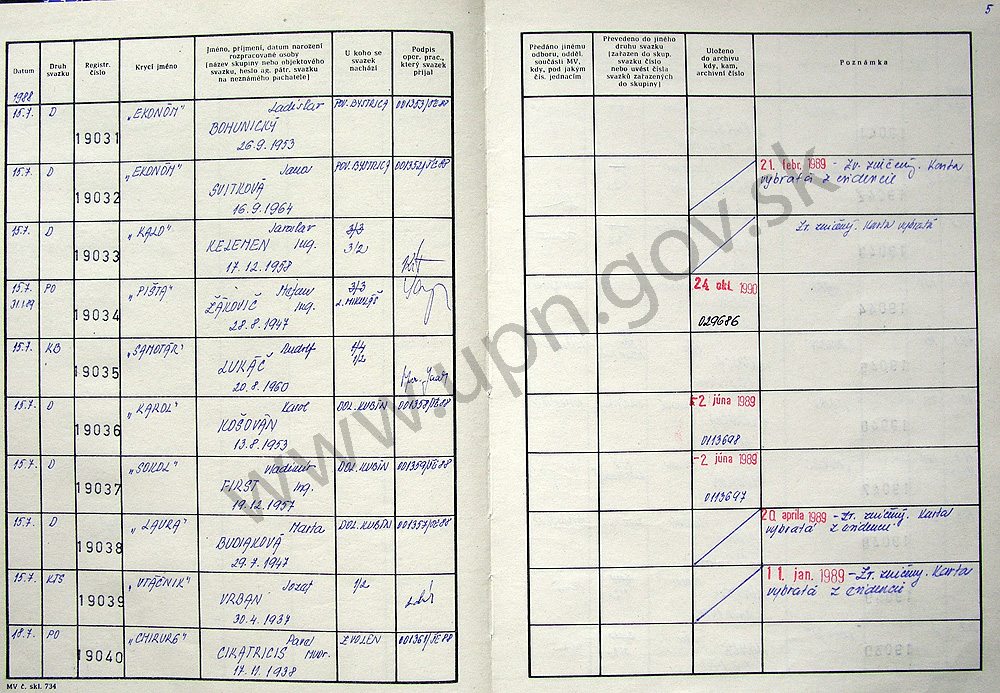 5
Datum
Druh svazku
Registr. číslo
Krycí jméno
Jméno, příjmení, datum narození rozpracované osoby (název skupiny nebo objektového svazku, heslo ag. pátr. svazku na neznámého pachatele)
U koho se svazek nachází
Podpis oper. prac., který svazek přijal
Předáno jinému odboru, odděl. součásti MV, kdy, pod jakým čís. jednacím
Převedeno do jiného druhu svazku (zařazen do skup. svazku číslo nebo uvést čísla svazků zařazených do skupiny)
Uloženo do archivu kdy, kam, archivní číslo
Poznámka
1988
15.7. D 19031 „EKONÓM" Ladislav POV. BYSTRICA
BOHUNICKÝ
26.9.1953
15.7. D 19032 „EKONÓM" Jana POV. BYSTRICA 21. febr. 1989 - Zv. zničený. Karta
SVITKOVÁ vybratá z evidencie
16.9.1964
15.7. D 19033 „KALO" Jaroslav 3/3 Zv. zničený. Karta vybratá
KELEMEN Ing. 3/2
17.12.1958
15.7. PO 19034 „PIŠTA" Štefan 3/3 24. okt. 1990
31.1.89 ŽÁKOVIČ Ing. L. MIKULÁŠ 029686
28.8.1947
15.7. KB 19035 „SAMOTÁR" Rudolf 1/4
LUKÁČ 1/2
20.8.1960
15.7. D 19036 „KAROL" Karol DOL. KUBÍN -2. júna 1989
KOŠOVÁN 0113698
13.8.1953
15.7. D 19037 „SOKOL" Vladimír DOL. KUBÍN -2. júna 1989
FIRST Ing. 0113697
19.12.1957
15.7. D 19038 „LAURA" Marta DOL. KUBÍN 20. apríla 1989 - Zv. zničený. Karta
BUDIAKOVÁ vybratá z evidencie
29.7.1947
15.7. KTS 19039 „VTÁČNIK" Jozef 1/2 11. jan. 1989 - Zv. zničený. Karta
VRBAN vybratá z evidencie
30.4.1937
18.7. PO 19040 „CHIRURG" Pavel ZVOLEN
CIKATRICIS Mudr.
17.11.1938
MV č. skl. 734
www.upn.gov.sk